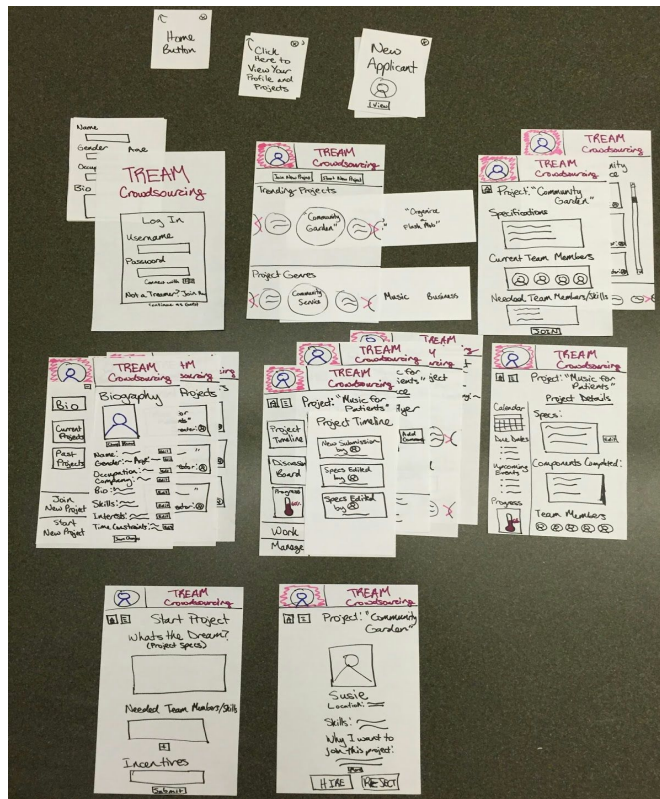 Home
Button
Click
Here to
View Your
Profile and
Projects
New
Applicant
View
Name
Gender
Age
Occup
Bio
TREAM
Crowdsourcing
Log In
Username
Password
Connect with
Not a Treamer? Join
Continue as Guest
TREAM
Crowdsourcing
Join New Project
Start New Project
Trending Projects
"Community
Garden"
"Organize
Flash Mob"
Project Genres
Community
Service
Music
Business
TREAM
Crowdsourcing
TREAM
Crowdsourcing
Project: "Community
Garden"
Specifications
Current Team Members
Needed Team Members/Skills
JOIN
TREAM
Crowdsourcing
Bio
Current
Projects
Past
Projects
Join
New Project
Start
New Project
Biography
Name:
Edit
Gender:
Age:
Edit
Occupation:
Edit
Company:
Edit
Bio:
Edit
Skills:
Edit
Interests:
Edit
Time Constraints:
Edit
Save Changes
Projects
TREAM
Crowdsourcing
TREAM
Crowdsourcing
Project: "Music for
Patients"
Project
Timeline
Discussion
Board
Progress
Work
Manage
Project Timeline
New Submission
by
Add
Comment
Specs Edited
by
Specs Edited
by
TREAM
Crowdsourcing
Project: "Music for
Patients"
Project Details
Calendar
Due Dates
Upcoming
Events
Progress
Specs:
Edit
Components Completed:
Team Members
TREAM
Crowdsourcing
Start Project
What's the Dream?
(Project Specs)
Needed Team Members/Skills
+
Incentives
Submit
TREAM
Crowdsourcing
Project: "Community
Garden"
Susie
Location:
Skills:
Why I want to
join this project:
HIRE
REJECT